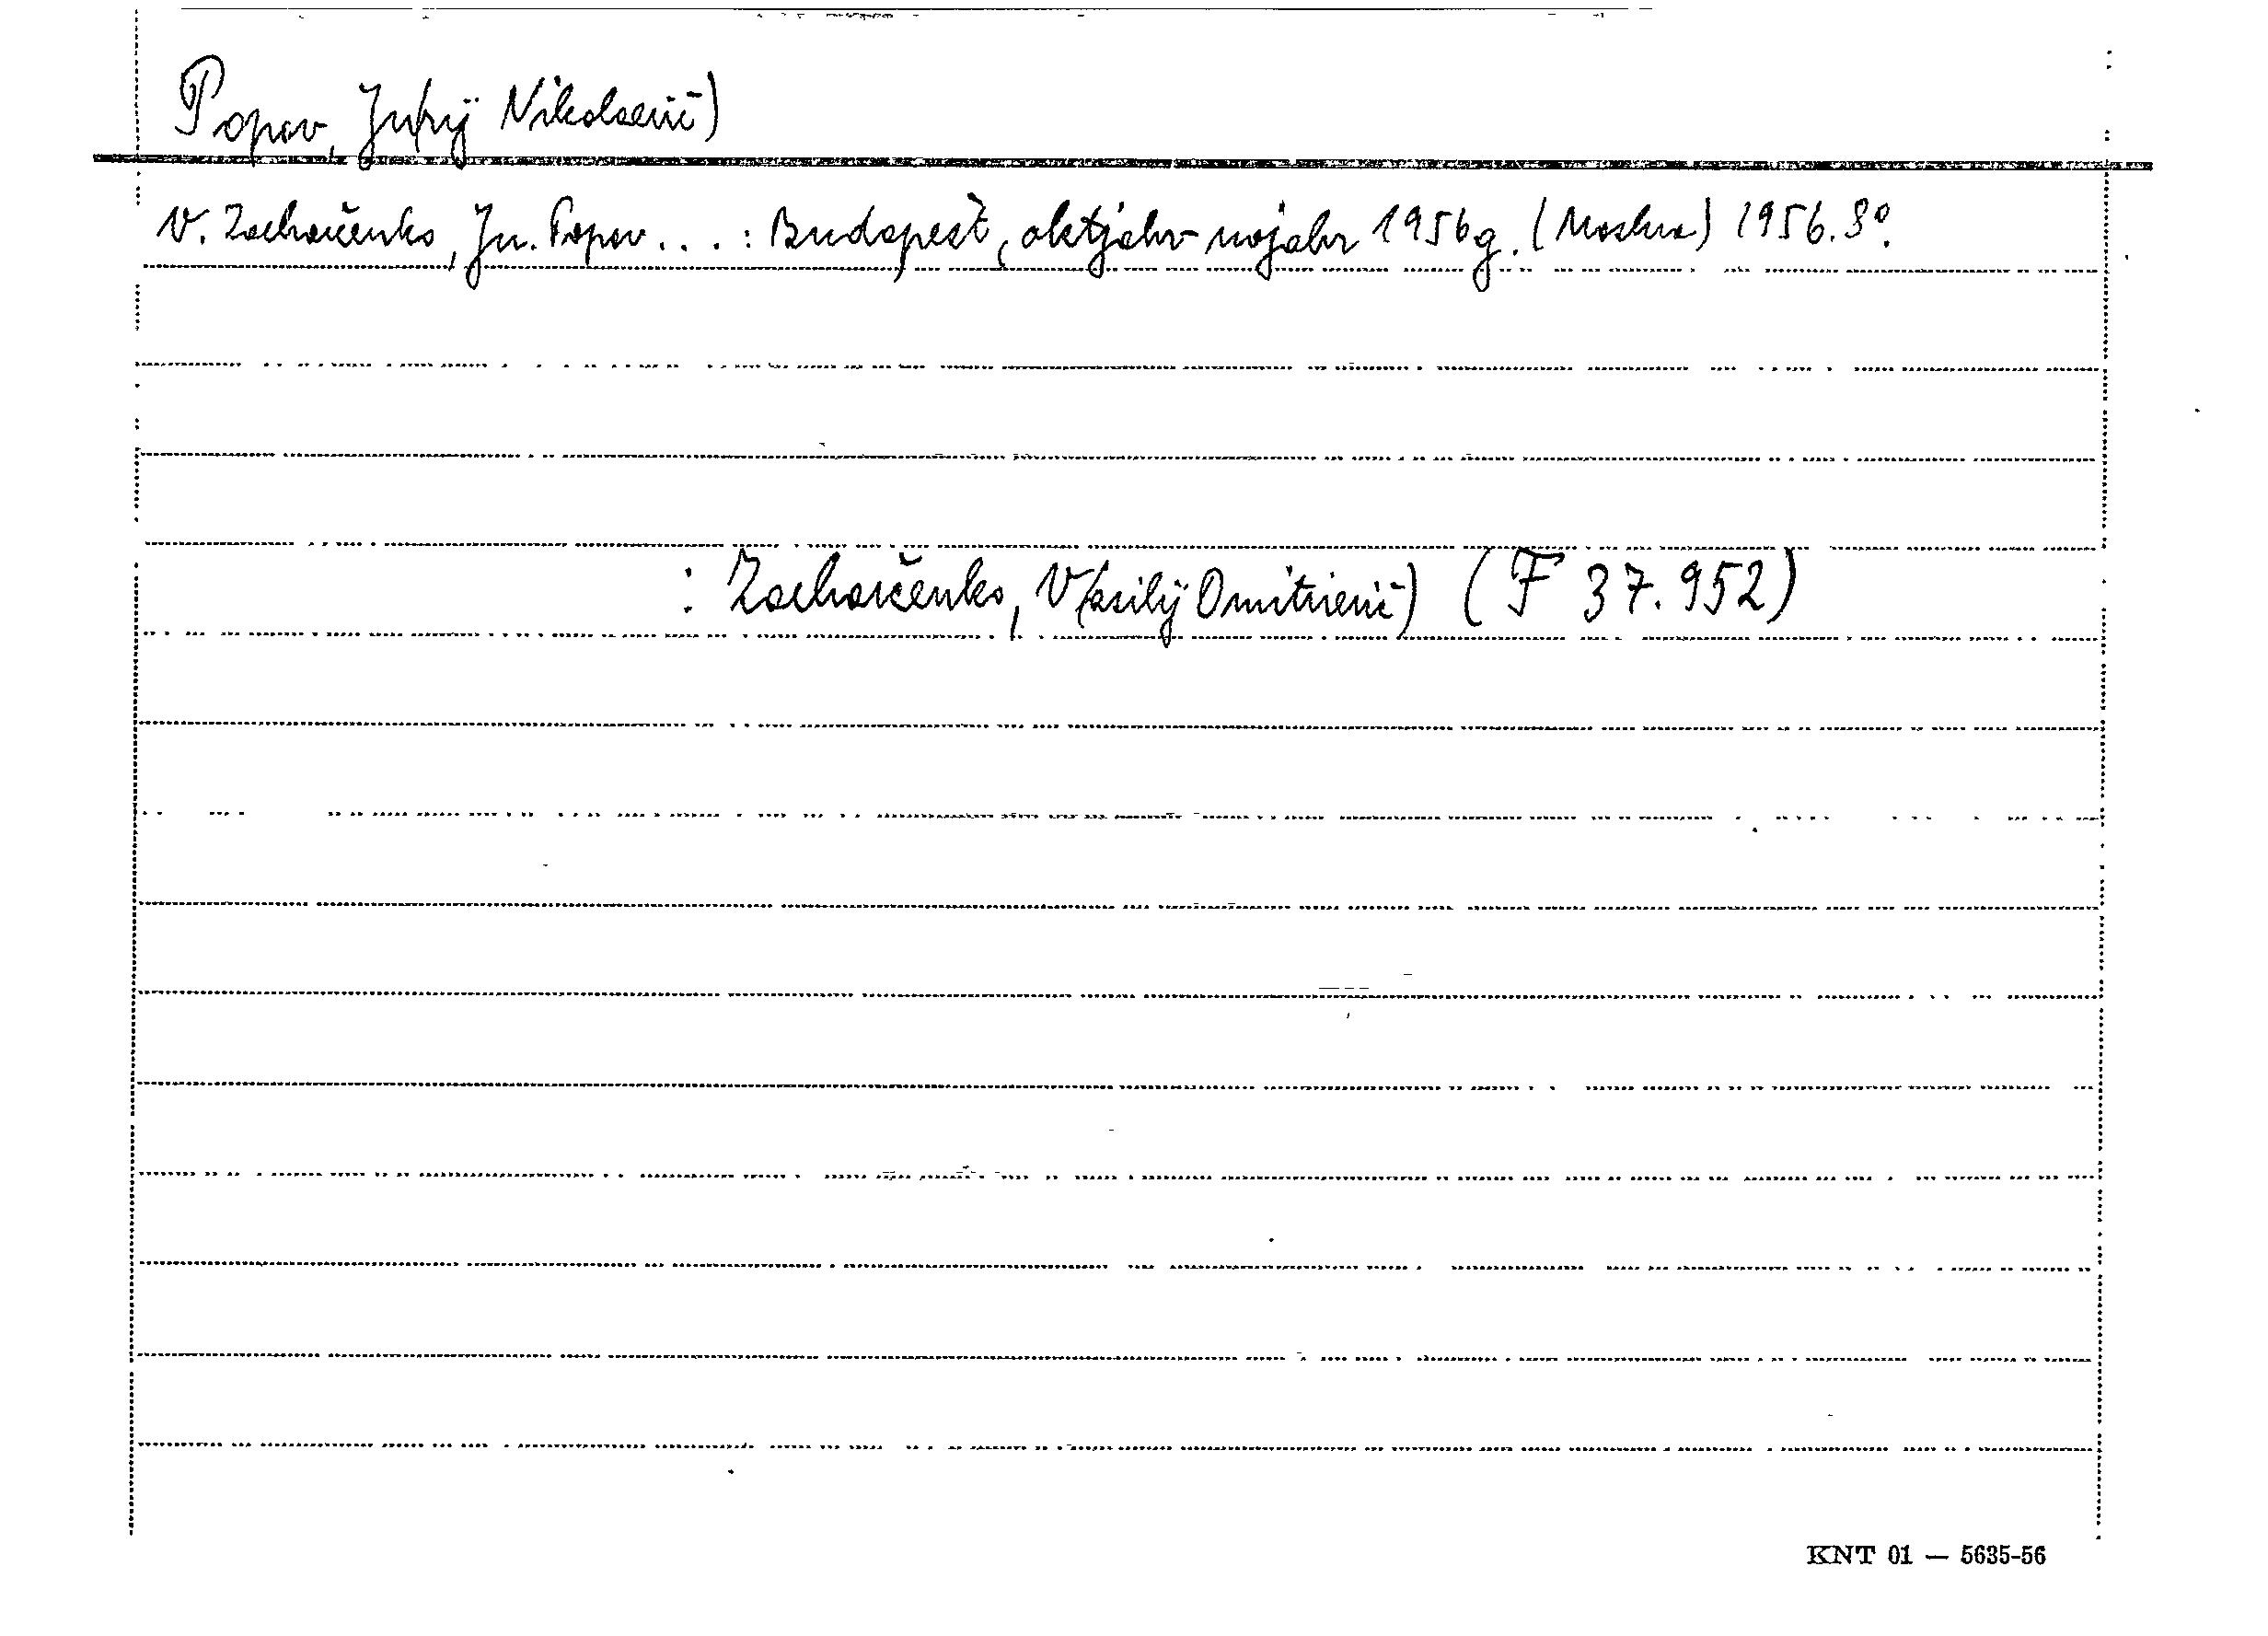 Popov, Ju(rij Nikolaevič)
V. Zacharčenko, Ju. Popov . . . : Budapest, oktjabr-nojabr 1956 g. (Moskva) 1956. 8°.
: Zacharčenko, V(asilij Dmitrievič) (F 37.952)
KNT 01 — 5635-56